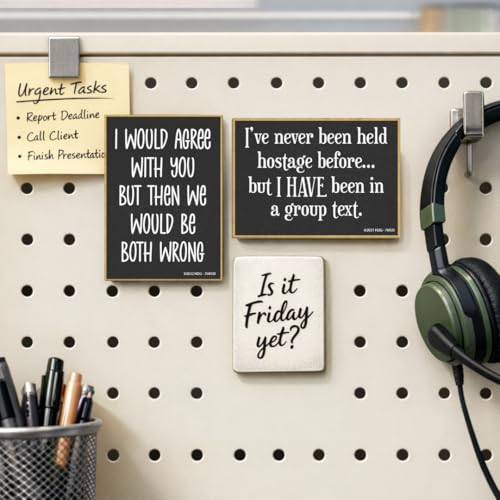 Urgent Tasks
• Report Deadline
• Call Client
• Finish Presentatio
I WOULD AGREE
WITH YOU
BUT THEN WE
WOULD BE
BOTH WRONG
I've never been held
hostage before...
but I HAVE been in
a group text.
Is it
Friday
yet?